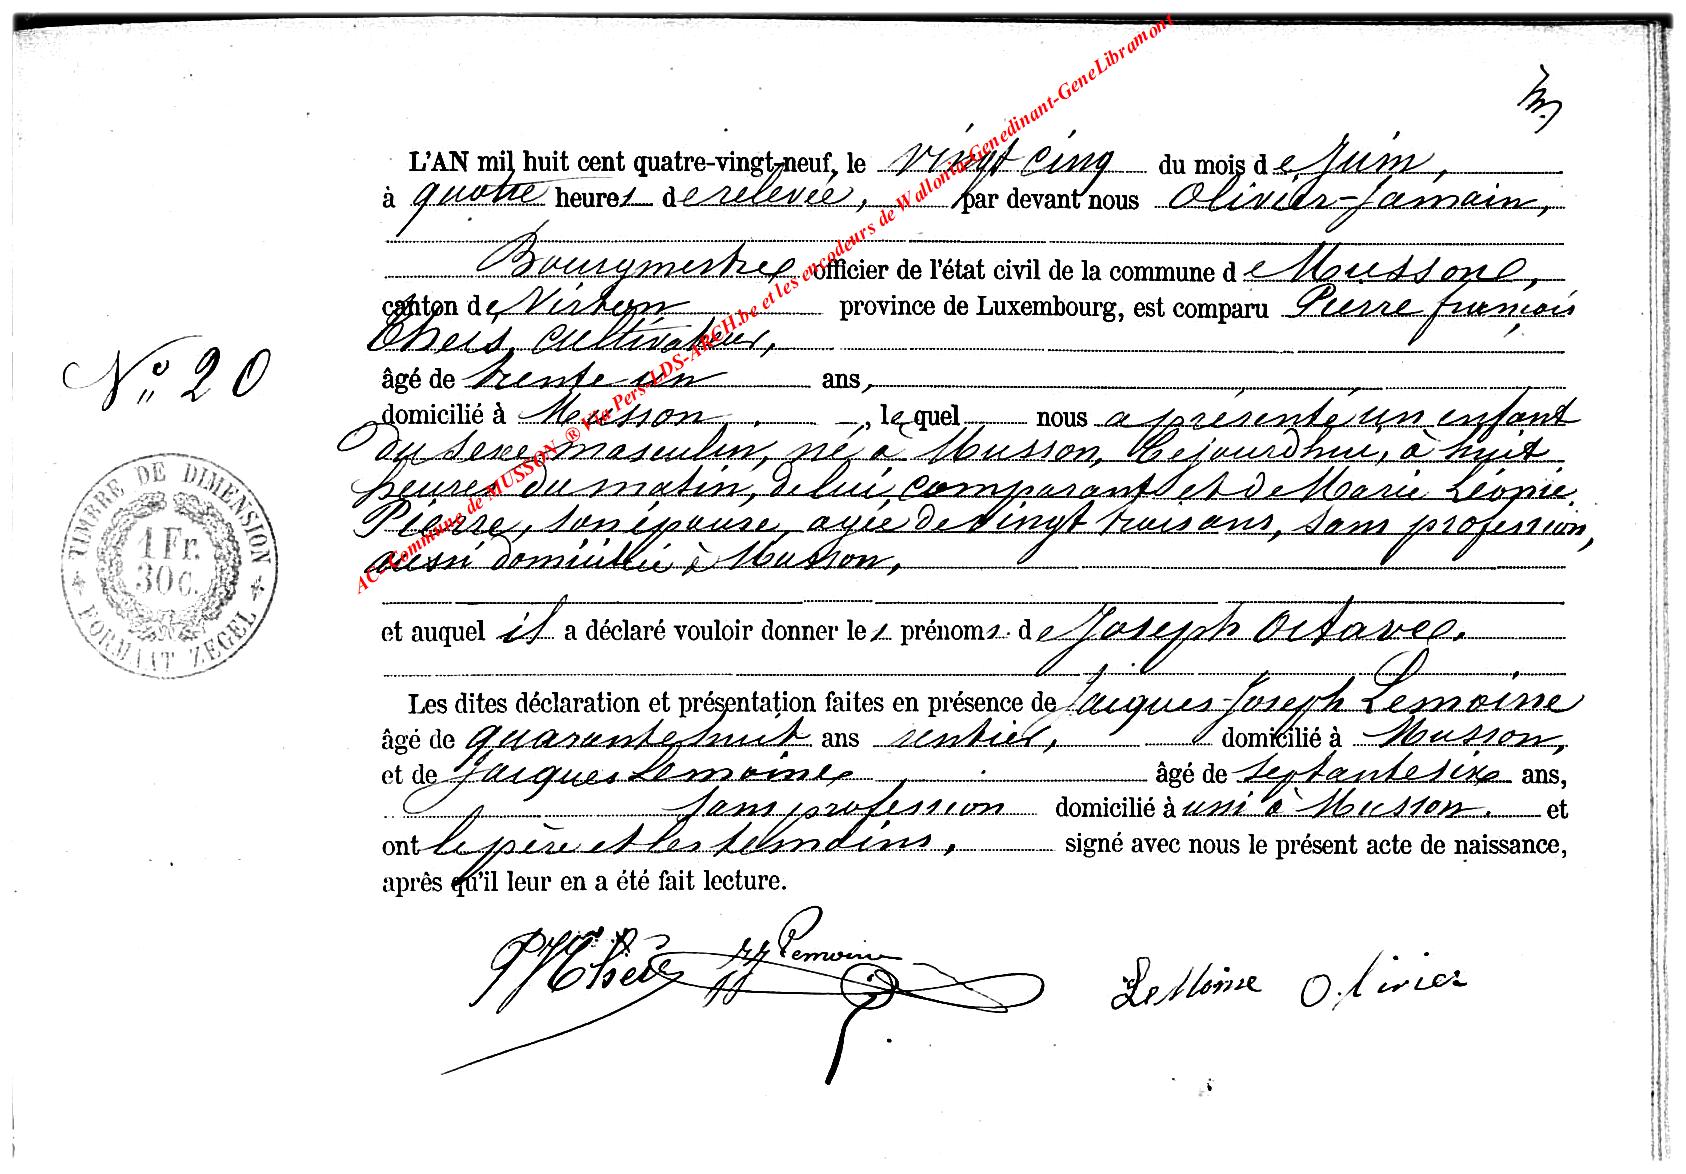 L'AN mil huit cent quatre-vingt-neuf, le vingt cinq du mois de Juin,
à quatre heures de relevée, par devant nous Olivier-Jamain,
Bourgmestre officier de l'état civil de la commune de Musson,
canton de Virton province de Luxembourg, est comparu Pierre françois
Theis, cultivateur,
âgé de trente un ans,
N° 20
domicilié à Musson, lequel nous a présenté un enfant
du sexe masculin, né à Musson, Cejourd'hui, à huit
heures du matin, de lui, comparant et de Marie Léonie
Pierre, son épouse, agée de vingt trois ans, sans profession,
aussi domiciliée à Musson,
TIMBRE DE DIMENSION
1 Fr.
30 C.
FORMAAT ZEGEL
et auquel il a déclaré vouloir donner les prénoms de Joseph Octave.
Les dites déclaration et présentation faites en présence de Jacques-Joseph Lemoine
âgé de quarante huit ans rentier, domicilié à Musson,
et de Jacques Lemoine âgé de septante six ans,
sans profession domicilié à à Musson. et
ont le père et les témoins, signé avec nous le présent acte de naissance,
après qu'il leur en a été fait lecture.
Lemoine LeMoine Olivier
AC-Commune de MUSSON ® Via Pers-LDS-ARCH.be et les encodeurs de Wallonia-Genedinant-GeneLibramont